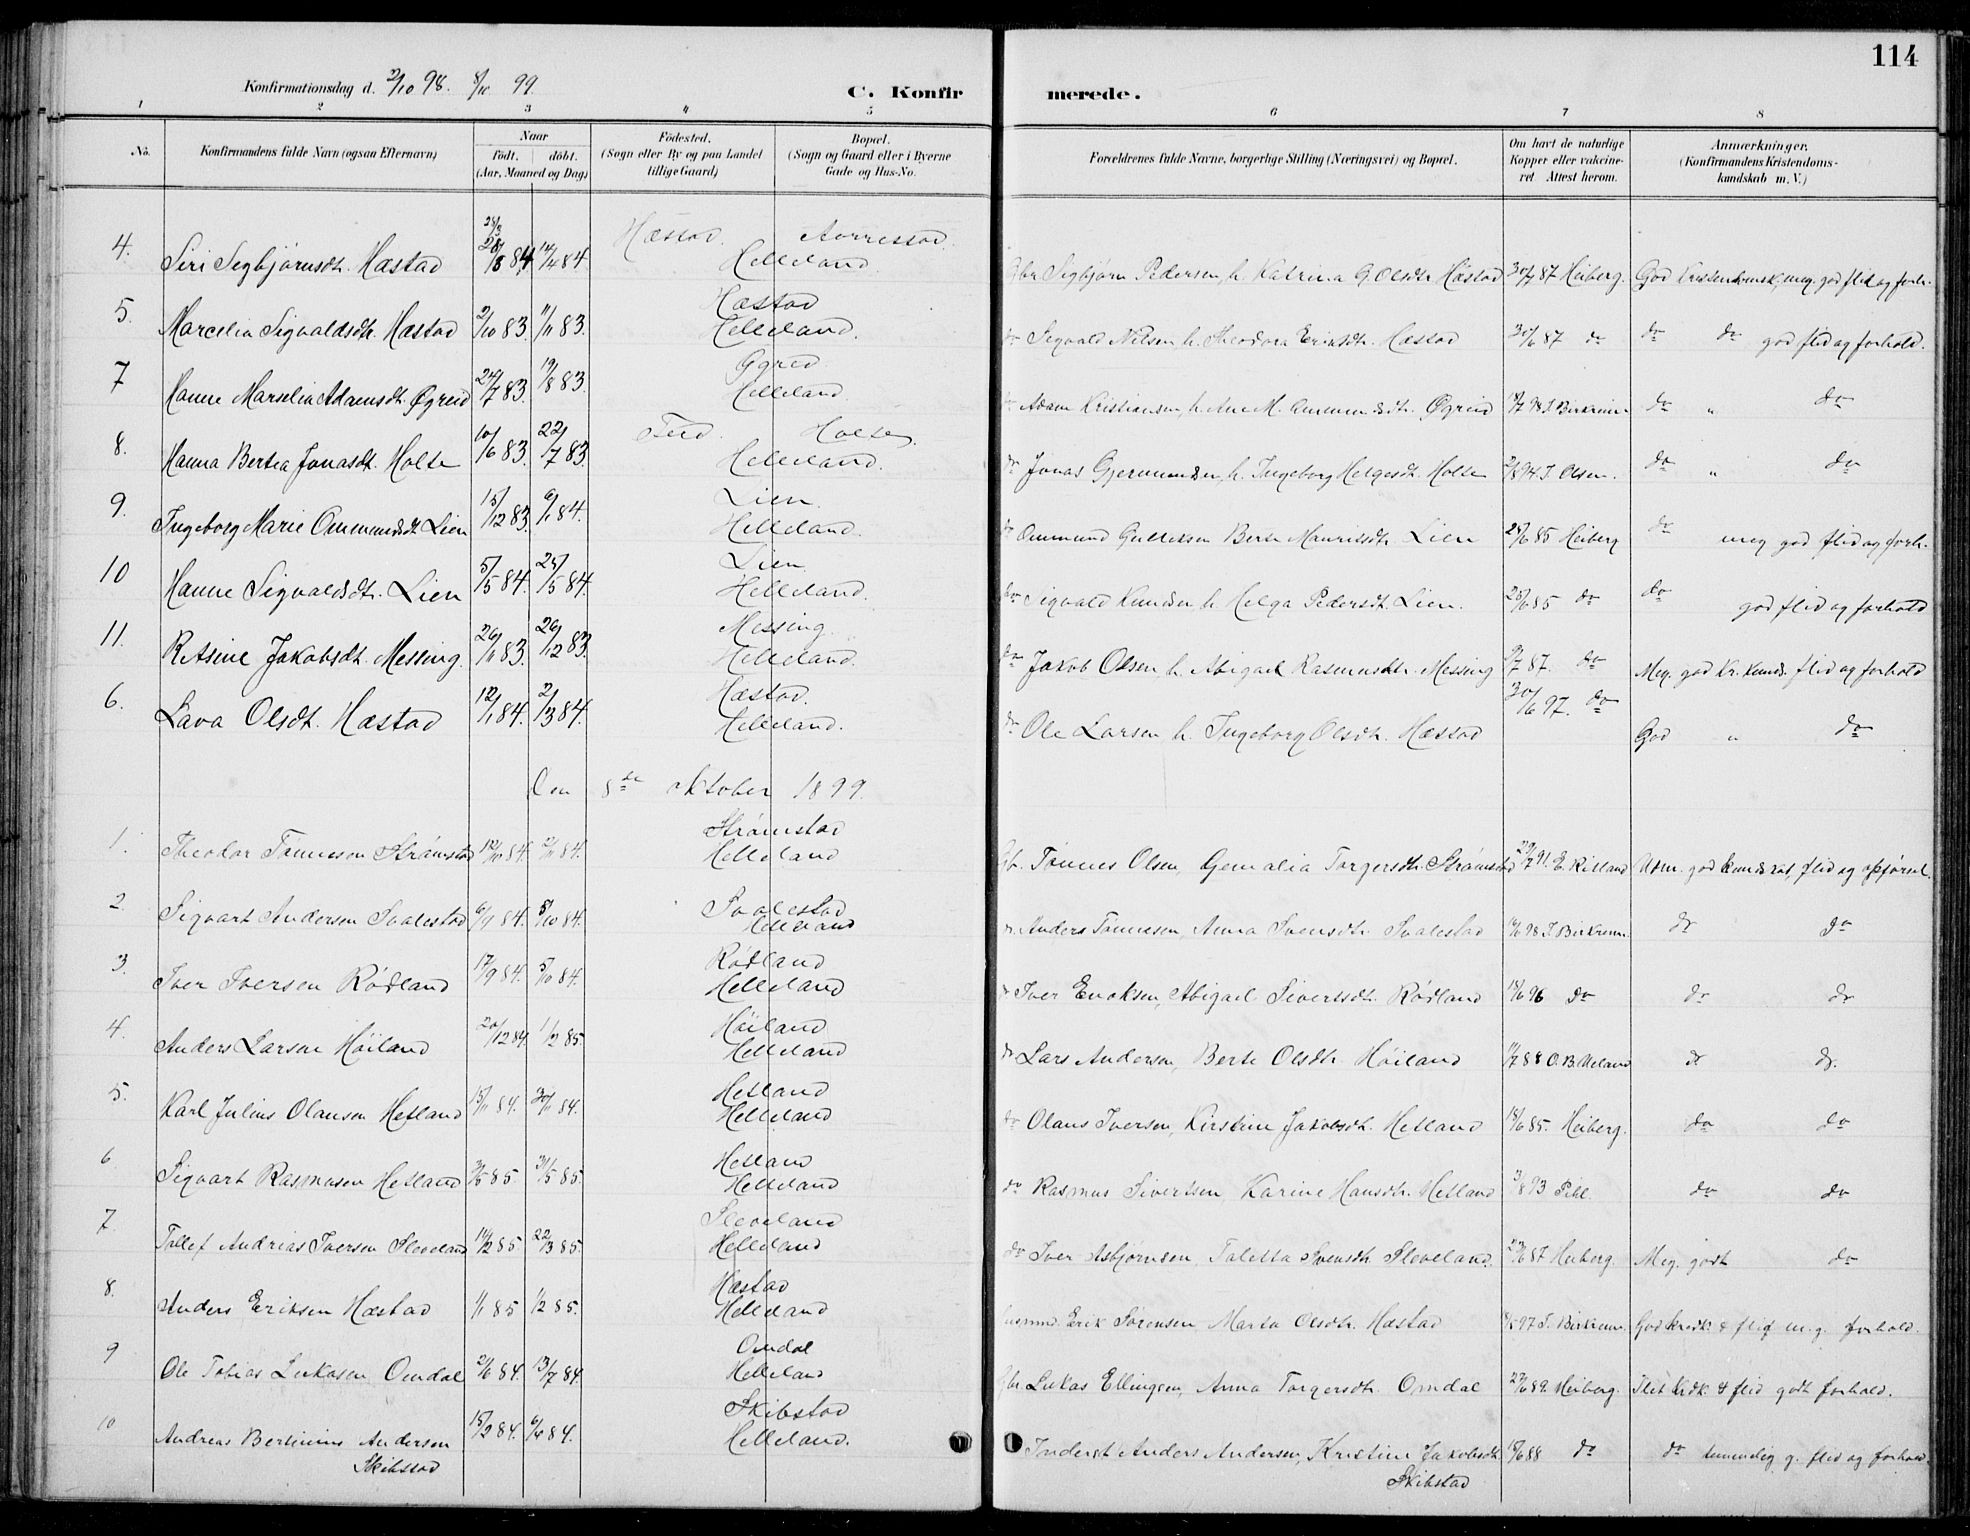 114
Konfirmationsdag d. 2/10 98. 8/10 99.
C. Konfirmerede.
1 2 3 4 5 6 7 8
No. Konfirmandens fulde Navn (ogsaa Efternavn) Naar født. døbt. (Aar, Maaned og Dag) Fødested. (Sogn eller By og paa Landet tillige Gaard) Bopæl. (Sogn og Gaard eller i Byerne Gade og Hus-No. Forældrenes fulde Navne, borgerlige Stilling (Næringsvei) og Bopæl. Om havt de naturlige Kopper eller vakcineret Attest herom. Anmærkninger. (Konfirmandens Kristendomskundskab m. V.)
Hæstad. Aarrestad.
4. Siri Segbjørnsdt. Hæstad 84 14/4 84. Helleland. Gbr Segbjørn Pedersen, h. Katrina G. Olsdtr Hæstad 87 Heiberg. God Kristendomsk, meg. god flid og forh.
Hæstad
5. Marcelia Sigvaldsdt. Hæstad 2/10 83. 11/11 83. Helleland. do Sigvald Nilsen h. Theodora Eriksdt. Hæstad 30/6 87 do do do god flid og forhold.
Øgreid
7 Hanne Marselia Adamsdt. Øgreid 24/7 83. 19/8 83. Helleland. Adam Kristiansen h. Ane M. Ommundsdt. Øgreid 98 T. Birkrem do " do
Teid. Holte
8. Hanna Bertea Jonasdt. Holte 10/6 83. 22/7 83. Helleland. do Jonas Gjermundsen, h. Ingeborg Helgesdt. Holte 94 T. Olsen. do " do
Lien
9. Ingeborg Marie Ommundsdt Lien 15/12 83. 6/1 84. Helleland. do Ommund Gulleksen Berte Mauritsdtr Lien 25/6 85 Heiberg do meg god flid og forh.
Lien
10 Hanne Sigvaldsdt. Lien 5/5 84. 25/5 84. Helleland. do Sigvald Knudsen h. Helga Pedersdt. Lien. 25/6 85 do do god flid og forhold
Messing.
11. Rasine Jakobsdt. Messing. 26/11 83. 26/12 83. Helleland. do Jakob Olsen h. Abigael Rasmusdtr. Messing 87. do Meg. god Kr. kunds. flid og forhold
Hæstad.
6. Lava Olsdt. Hæstad 12/1 84. 2/3 84. Helleland. do Ole Larsen h. Ingeborg Olsdt. Hæstad 30/6 97. do God " do
Den 8de Oktober 1899.
Strømstad
1. Theodor Tønnesen Strømstad 12/10 84. 2/11 84. Helleland Gb. Tønnes Olsen, Gemalia Torgersdt. Strømstad 29/7 91. E. Ritland Udm. god kundskab, flid og opførsel.
Svalestad
2. Sigvart Andersen Svalestad 6/9 84. 5/10 84. Helleland do Anders Tønnesen, Anna Svensdtr. Svalestad 98 T. Birkrem. do do
Rødland
3. Iver Iversen Rødland 17/9 84. 5/10 84. Helleland do Iver Enoksen, Abigael Sivertsdt. Rødland 18/6 96 do do do
Høiland
4. Anders Larsen Høiland 20/12 84. 1/2 85. Helleland do Lars Andersen, Berte Olsdtr. Høiland 88 O. B. Ueland do do.
Hetland
5. Karl Julius Olausen Hetland 15/11 84. 30/11 84. Helleland do Olaus Iversen, Kirstine Jakobsdt. Hetland 18/6 85. Heiberg. do do
Hetland
6 Sigvart Rasmusen Hetland 3/5 85. 31/5 85. Helleland do Rasmus Sivertsen, Karine Hansdt. Hetland 3/8 93 Pihl. do do
Sleveland
7. Tollef Andreas Iversen Sleveland 14/2 85. 22/3 85. Helleland do Iver Asbjørnsen, Taletta Svensdt. Sleveland. 87 Heiberg. Meg. godt do
Hæstad
8. Anders Eriksen Hæstad 1/1 85 1/2 85. Helleland husmd. Erik Sørensen Marta Olsdtr. Hæstad 97 T. Birkrem. God krdk. & flid m. g. forhold.
Omdal
9 Ole Tobias Lukasen Omdal 2/6 84. 13/7 84. Helleland Gbr Lukas Ellingsen, Anna Torgersdt. Omdal 89. Heiberg. Slet krdk. & flid godt forhold.
Skibstad
10 Andreas Bertinius Andersen 15/2 84. 6/4 84. Helleland. Inderst Anders Andersen, Kristine Jakobsdt. 88 do do temmelig g. flid og forhold.
Skibstad Skibstad